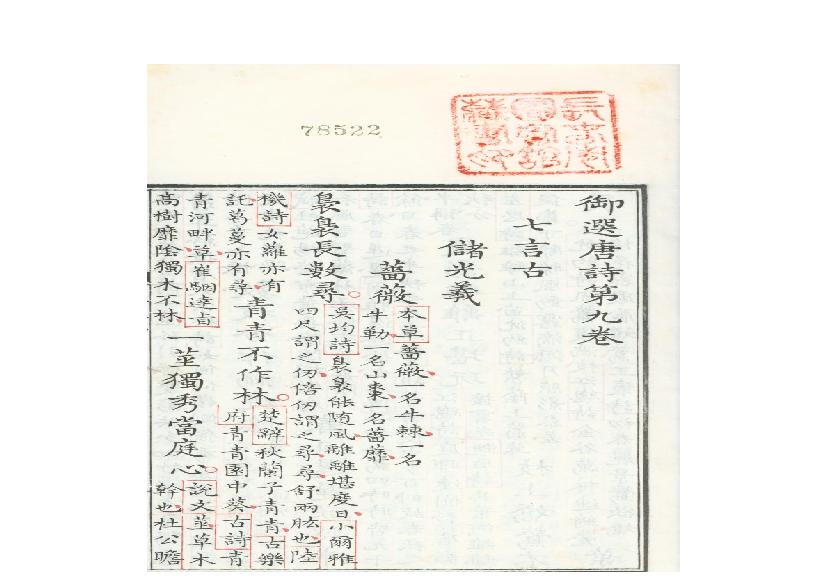 78522
御選唐詩第九卷
七言古
儲光羲
薔薇
本草薔薇一名牛棘一名
牛勒一名山棗一名薔蘼
裊裊長數尋
吳均詩裊裊能随風離離堪度日小爾雅
四尺謂之仞倍仞謂之尋尋舒兩肱也陸
機詩女蘿亦有
託葛蔓亦有尋
青青不作林
楚辭秋蘭子青青古樂
府青青園中葵古詩青
青河畔草崔駰達㫖
高樹靡陰獨木不林
一莖獨秀當庭心
說文莖草木
幹也杜公瞻